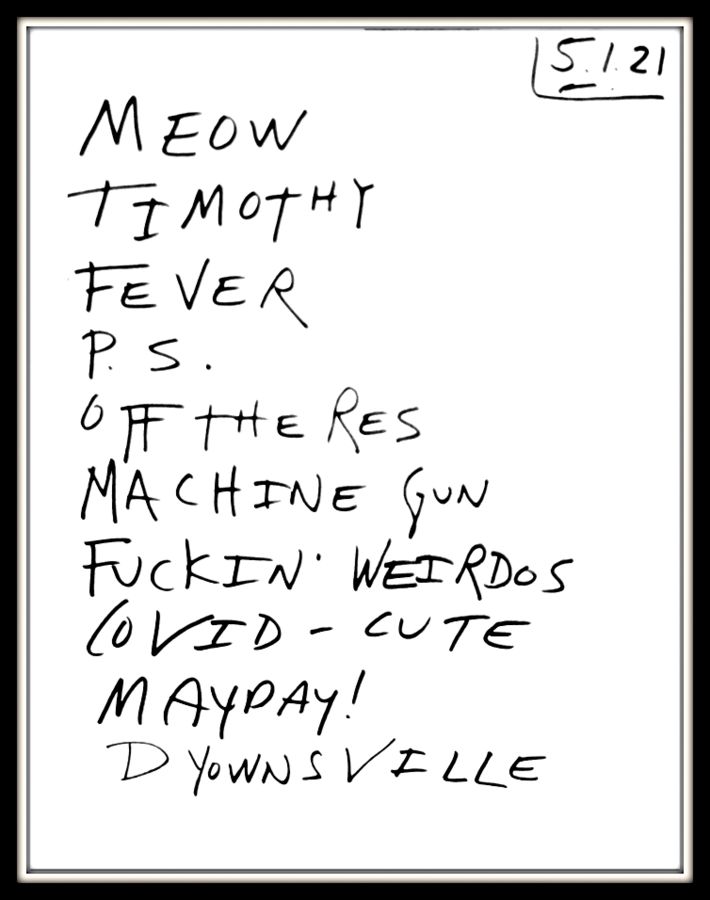 5.1.21
MEOW
TIMOTHY
FEVER
P.S.
OFF THE RES
MACHINE GUN
FUCKIN' WEIRDOS
COVID - CUTE
MAYDAY!
DYOWNSVILLE